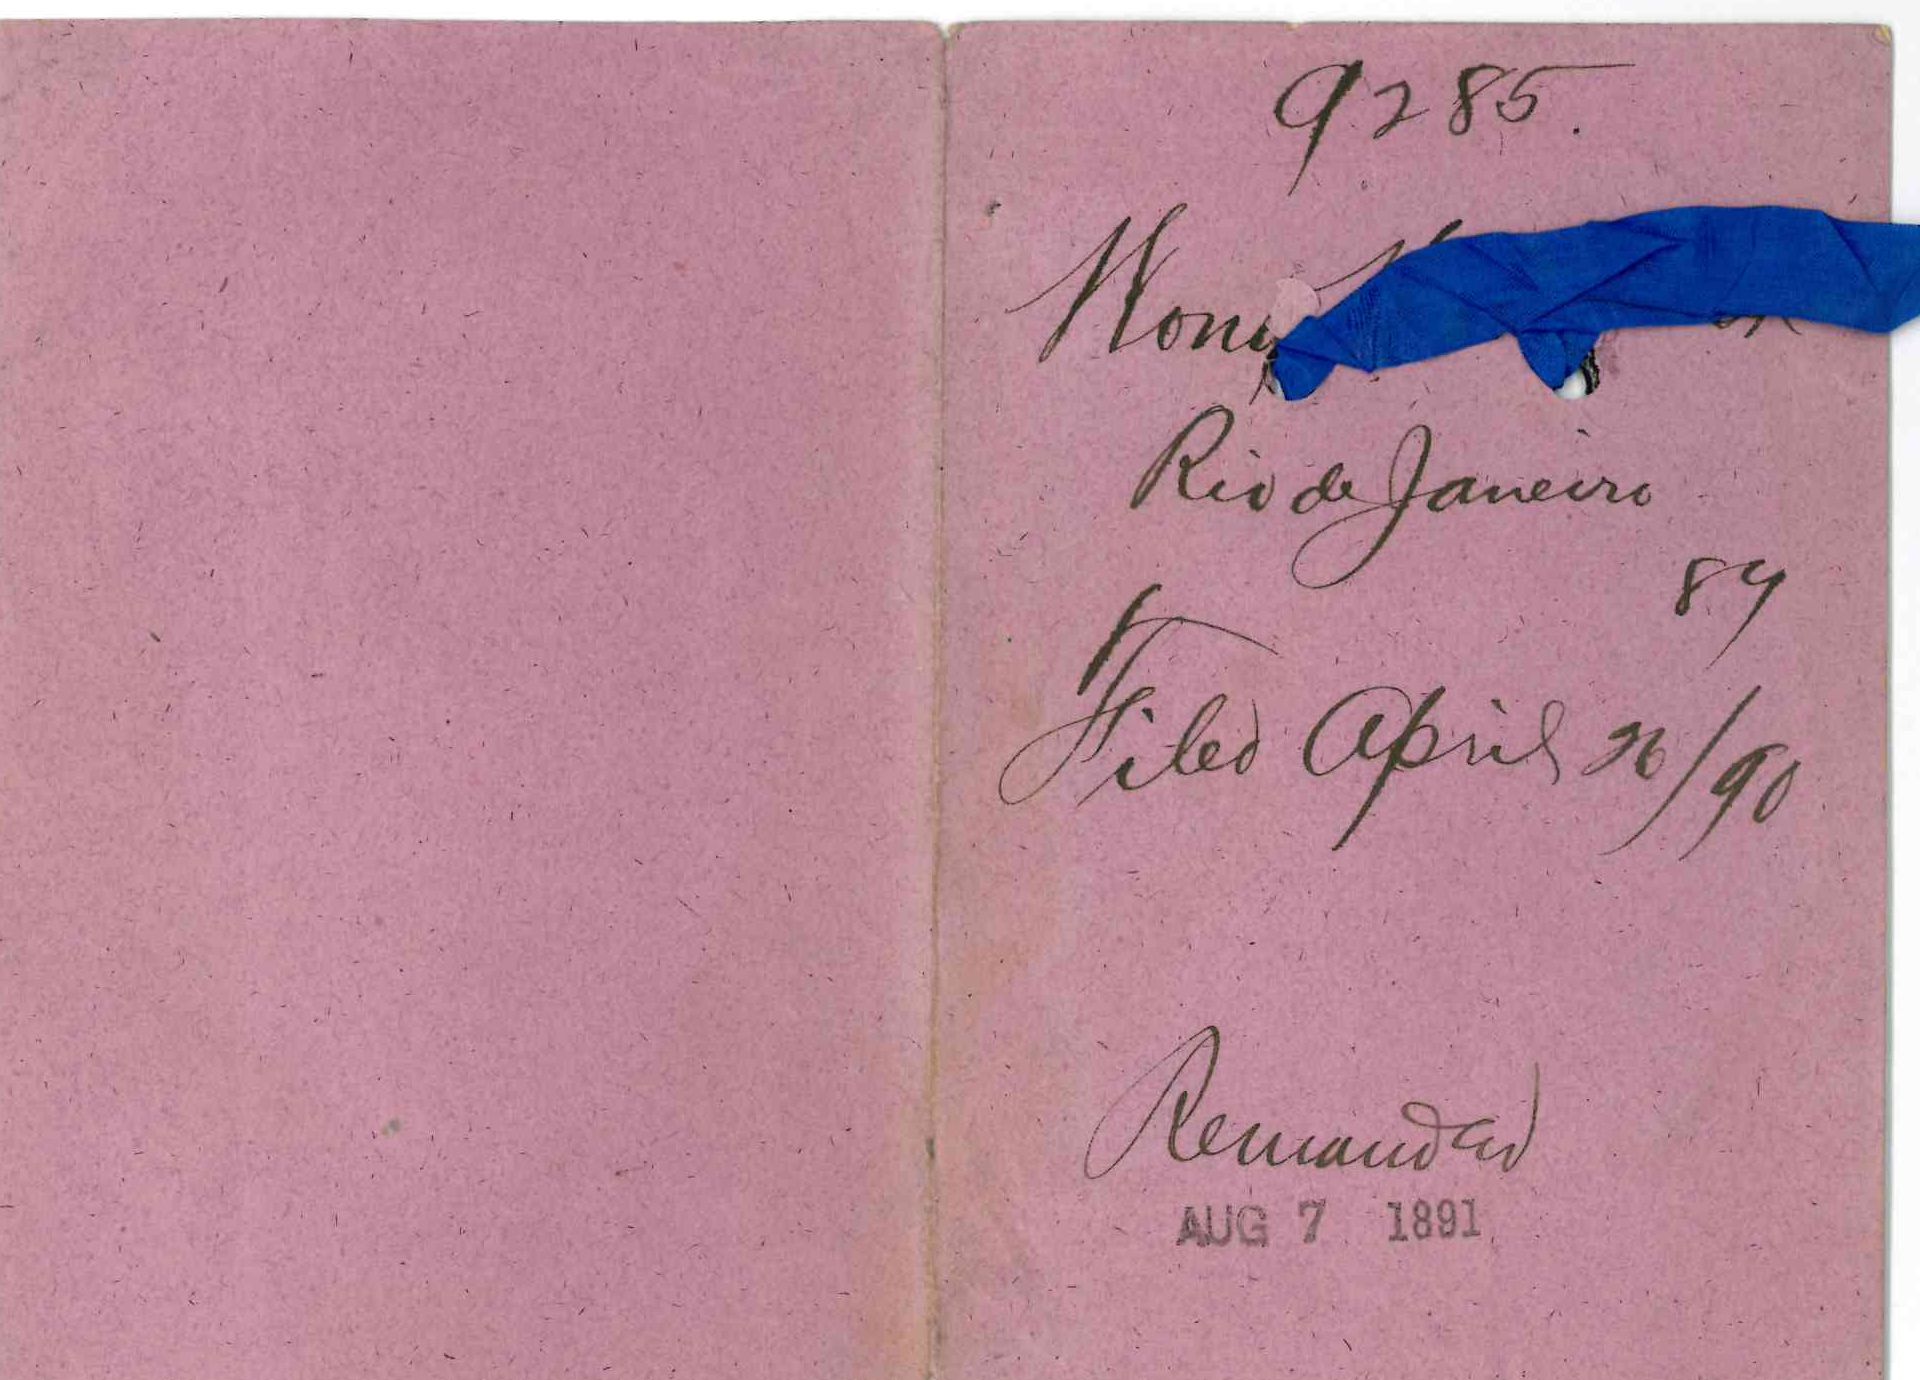 9285.
Wong
Rio de Janeiro
84
Filed April 26/90
Remanded
AUG 7 1891